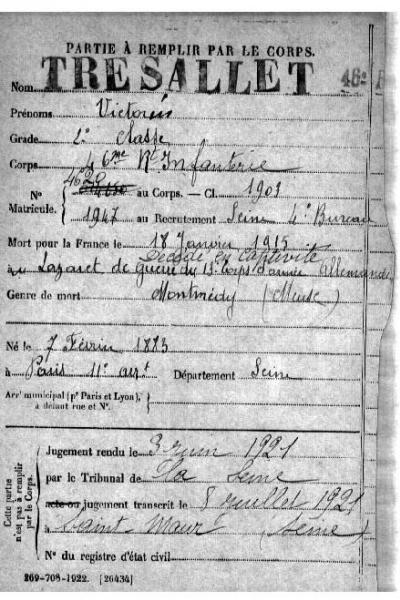 PARTIE À REMPLIR PAR LE CORPS.
Nom TRESALLET 46e
Prénoms Victorin
Grade 2e classe
Corps 46me Rt Infanterie
No Matricule. 4620 au Corps. — Cl. 1903
1947 au Recrutement Seine 4e Bureau
Mort pour la France le 18 Janvier 1915
Décédé en captivité
au Lazaret de Guerre du 13e Corps d'armée Allemande
Genre de mort Montmédy (Meuse)
Né le 7 Février 1883
à Paris 11e arrt Département Seine
Arrt municipal (pr Paris et Lyon),
à défaut rue et No.
Cette partie n'est pas à remplir par le Corps.
Jugement rendu le 3 juin 1921
par le Tribunal de La Seine
acte ou jugement transcrit le 8 juillet 1921
à Saint Maur (Seine)
No du registre d'état civil
269-708-1922. [26434]